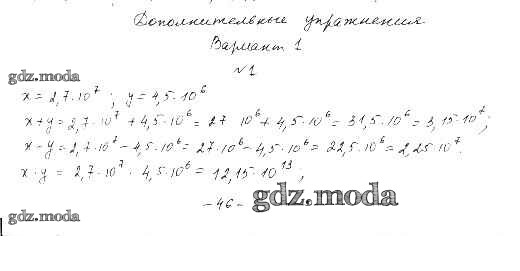 Дополнительные упражнения
Вариант 1
№1
gdz.moda
x = 2,7·10⁷ ; y = 4,5·10⁶
x+y = 2,7·10⁷ + 4,5·10⁶ = 27 10⁶ + 4,5·10⁶ = 31,5·10⁶ = 3,15·10⁷;
x-y = 2,7·10⁷ - 4,5·10⁶ = 27·10⁶ - 4,5·10⁶ = 22,5·10⁶ = 2,25·10⁷.
x·y = 2,7·10⁷ · 4,5·10⁶ = 12,15·10¹³,
-46-
gdz.moda
gdz.moda